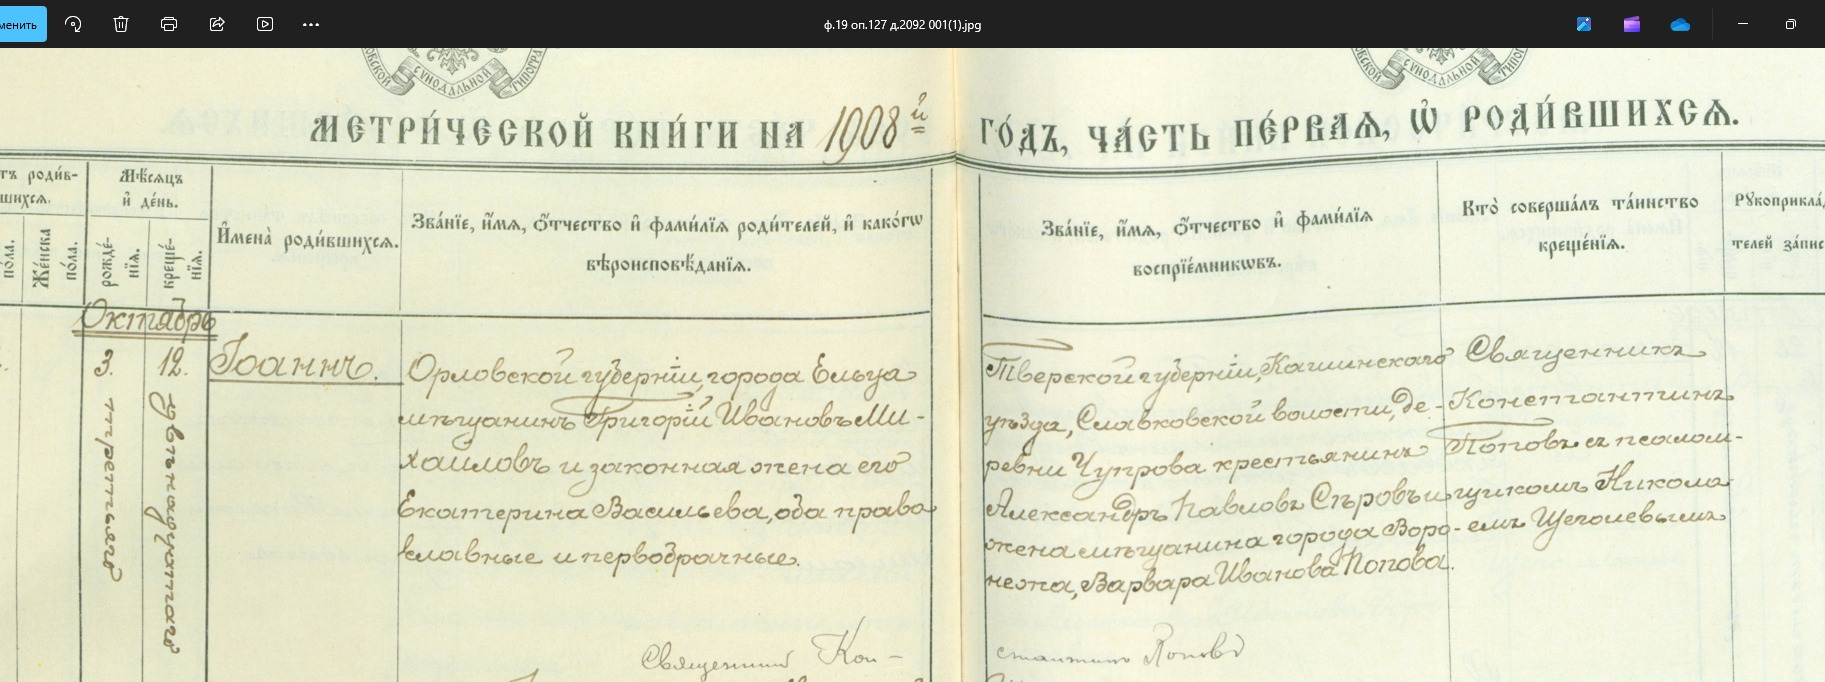 менить
ф.19 оп.127 д.2092 001(1).jpg
СѴНОДАЛЬНОЙ
СѴНОДАЛЬНОЙ
МЕТРИ́ЧЕСКОЙ КНИ́ГИ НА 1908й ГО́ДЪ, ЧА́СТЬ ПЕ́РВАѦ, Ѡ҆ РОДИ́ВШИХСѦ.
тъ роди́в-
шихсѧ.
пола.
Же́нска
по́ла.
Мѣ́сѧцъ
и҆ де́нь.
рожде́-
нїѧ.
креще́-
нїѧ.
И҆мена̀ роди́вшихсѧ.
Зва́нїе, и҆́мѧ, ѻ҆́тчество и҆ фами́лїѧ роди́телей, и҆ како́гѡ
вѣроисповѣ́данїѧ.
Зва́нїе, и҆́мѧ, ѻ҆́тчество и҆ фами́лїѧ
воспрїе́мникѡвъ.
Кто̀ соверша́лъ та́инство
креще́нїѧ.
Рꙋкоприкла́
телей за́пис
Октябрь
3.
третьяго
12.
двѣнадцатаго
Іоаннъ.
Орловской губерніи, города Ельца
мѣщанинъ Григорій Ивановъ Ми-
хайловъ и законная жена его
Екатерина Васильева, оба право
славные и первобрачные.
Тверской губерніи, Кашинскаго
уѣзда, Славковской волости, де-
ревни Чупрова крестьянинъ
Александръ Павловъ Сѣровъ и
жена мѣщанина города Воро-
нежа, Варвара Иванова Попова.
Священникъ
Константинъ
Поповъ съ псалом-
щикомъ Никола-
емъ Щеголевымъ
Священникъ Кон-
стантинъ Поповъ